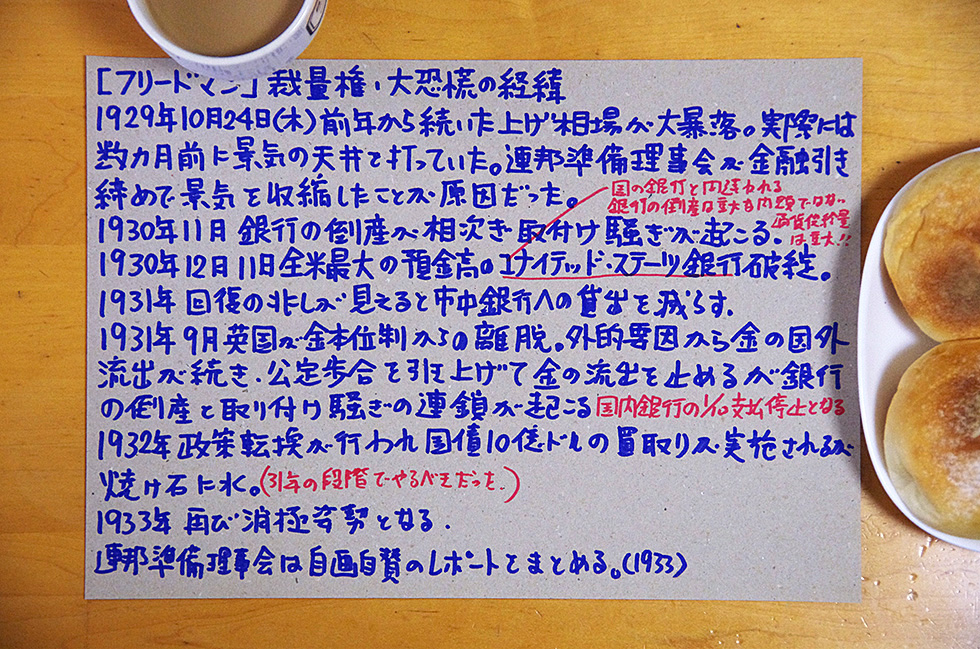 [フリードマン] 裁量権・大恐慌の経緯
1929年10月24日(木)前年から続いた上げ相場が大暴落。実際には
数カ月前に景気の天井を打っていた。連邦準備理事会が金融引き
締めで景気を収縮したことが原因だった。
国の銀行と間違われる
銀行の倒産は重大な問題ではない
通貨供給量
は重大!!
1930年11月銀行の倒産が相次ぎ取付け騒ぎが起こる.
1930年12月11日全米最大の預金高のユナイテッド・ステーツ銀行破綻。
1931年 回復の兆しが見えると市中銀行への貸出を減らす.
1931年9月英国が金本位制からの離脱。外的要因から金の国外
流出が続き.公定歩合を引き上げて金の流出を止めるが銀行
の倒産と取り付け騒ぎの連鎖が起こる 国内銀行の1/10支払停止となる
1932年 政策転換が行われ国債10億ドルの買取りが実施されるが
焼け石に水。(31年の段階でやるべきだった.)
1933年 再び消極姿勢となる.
連邦準備理事会は自画自賛のレポートをまとめる。(1933)